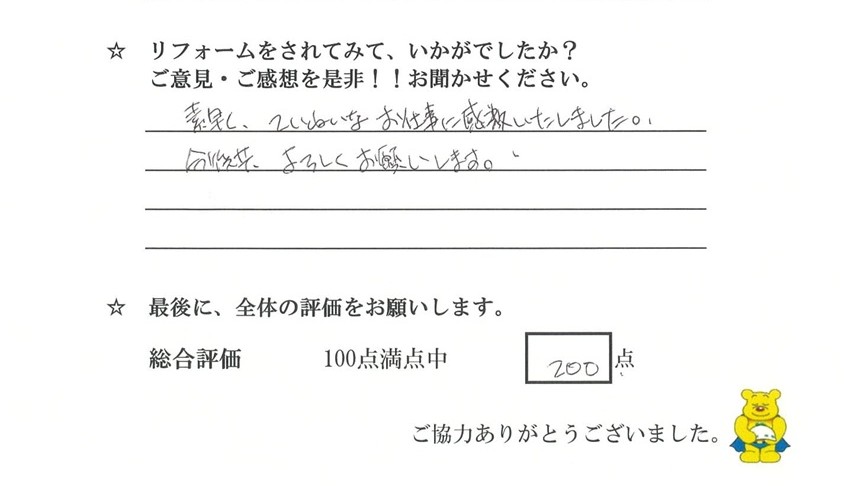 ☆ リフォームをされてみて、いかがでしたか？
ご意見・ご感想を是非！！お聞かせください。
素早く、ていねいなお仕事に感激いたしました。
今後共、よろしくお願いします。
☆ 最後に、全体の評価をお願いします。
総合評価 100点満点中 200 点
ご協力ありがとうございました。